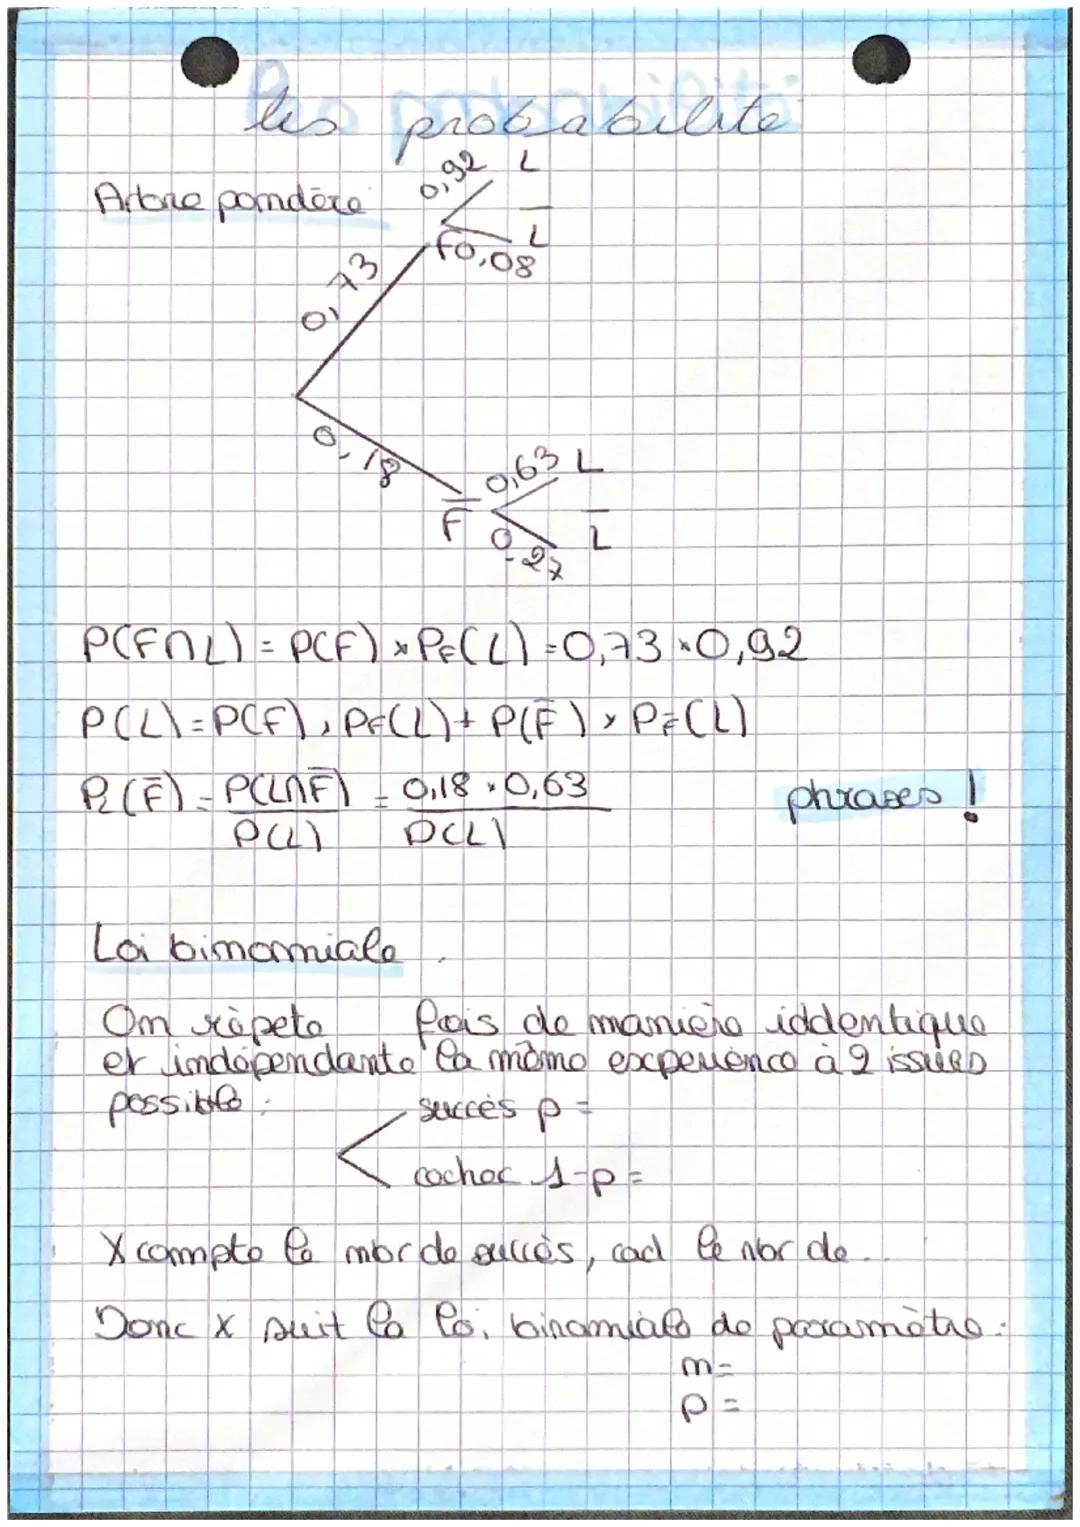 les probabilite
Arbre pondéré
0,92 L
L̅
F 0,08
0,73
0,18
0,63 L
F̅
L̅
0,27
P(F∩L) = P(F) × P_F(L) = 0,73 × 0,92
P(L) = P(F) × P_F(L) + P(F̅) × P_F̅(L)
P_L(F̅) = P(L∩F̅) / P(L) = 0,18 × 0,63 / P(L)
phrases !
Loi binomiale
On répete fois de manière iddentique
et indépendante la même experience à 2 issues
possible :
succès p =
echec 1-p =
X compte le nbr de succès, cad le nbr de ...
Donc X suit la loi binomiale de paramètre :
n =
p =